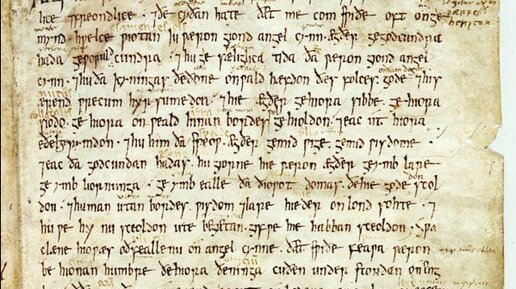 lice ⁊ freondlice · ⁊ ðe cyðan hate ðæt me com swiðe oft on ge
mynd · hwelce wiotan iu wæron giond angel
cynn · ægðer ge godcundra
hada ge woruldcundra · ⁊ hu gesæliglica tida ða wæron giond angel
cynn · ⁊ hu ða kyningas ðe ðone onwald hæfdon ðæs folces gode ⁊ his
ærendwrecum hyrsumedon · ⁊ hie ægðer ge hiora sibbe ge hiora
siodo · ge hiora onweald innanbordes gehioldon · ⁊ eac ut hiora
eðel rymdon · ⁊ hu him ða speow · ægðer ge mid wige · ge mid wisdome ·
⁊ eac ða godcundan hadas · hu giorne hie wæron · ægðer ge ymb lare
ge ymb liornunga · ge ymb ealle ða ðiowotdomas · ðe hie gode scol
don · ⁊ hu man utanbordes wisdom ⁊ lare hieder on lond sohte · ⁊
hu we hy nu sceoldon ute begietan · gif we hie habban sceoldon · swæ
clæne hio wæs oðfeallenu on angelcynne · ðæt swiðe feawa wæron
behionan humbre ðe hiora ðeninga cuðen understondan on eng